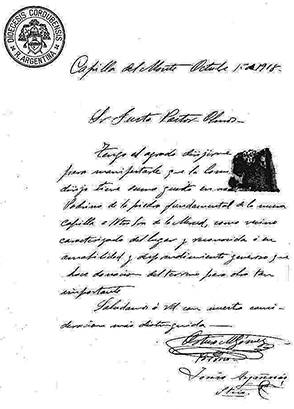 DIOCESIS CORDUBENSIS
R. ARGENTINA
Capilla del Monte Octubre 1º de 1918.
Sr Justo Pastor
Tengo el agrado dirijirme
para manifestarle que la Com
dirijo tiene sumo gusto en
Padrino de la piedra fundamental de la nueva
capilla a Ntra Sra de la Merced, como vecino
caracterizado del lugar y reconocida
amabilidad y desprendimiento generoso que
hace donacion del terreno para obra tan
importante
Saludamos á Vd con nuestra consi-
deracion mas distinguida
Tomás